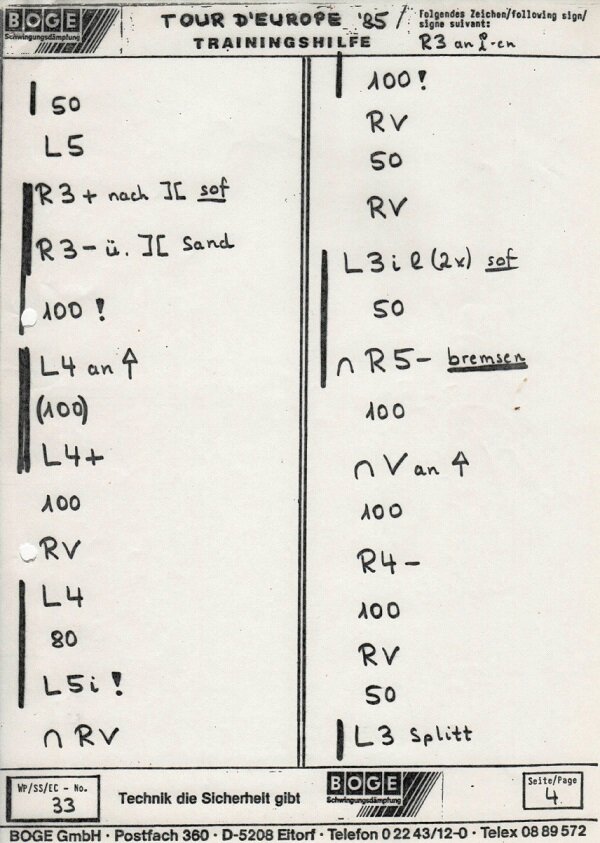 BOGE
Schwingungsdämpfung
TOUR D'EUROPE '85/
TRAININGSHILFE
Folgendes Zeichen/following sign/
signe suivant:
50
L5
R3+ nach ][ sof
R3- ü. ][ Sand
100 !
L4 an ↑
(100)
L4+
100
RV
L4
80
L5i !
∩ RV
100!
RV
50
RV
L3i (2x) sof
50
∩ R5- bremsen
100
∩ V an ↑
100
R4-
100
RV
50
L3 Splitt
WP/SS/EC - No.
33
Technik die Sicherheit gibt
BOGE
Schwingungsdämpfung
Seite/Page
4
BOGE GmbH · Postfach 360 · D-5208 Eitorf · Telefon 0 22 43/12-0 · Telex 08 89 572